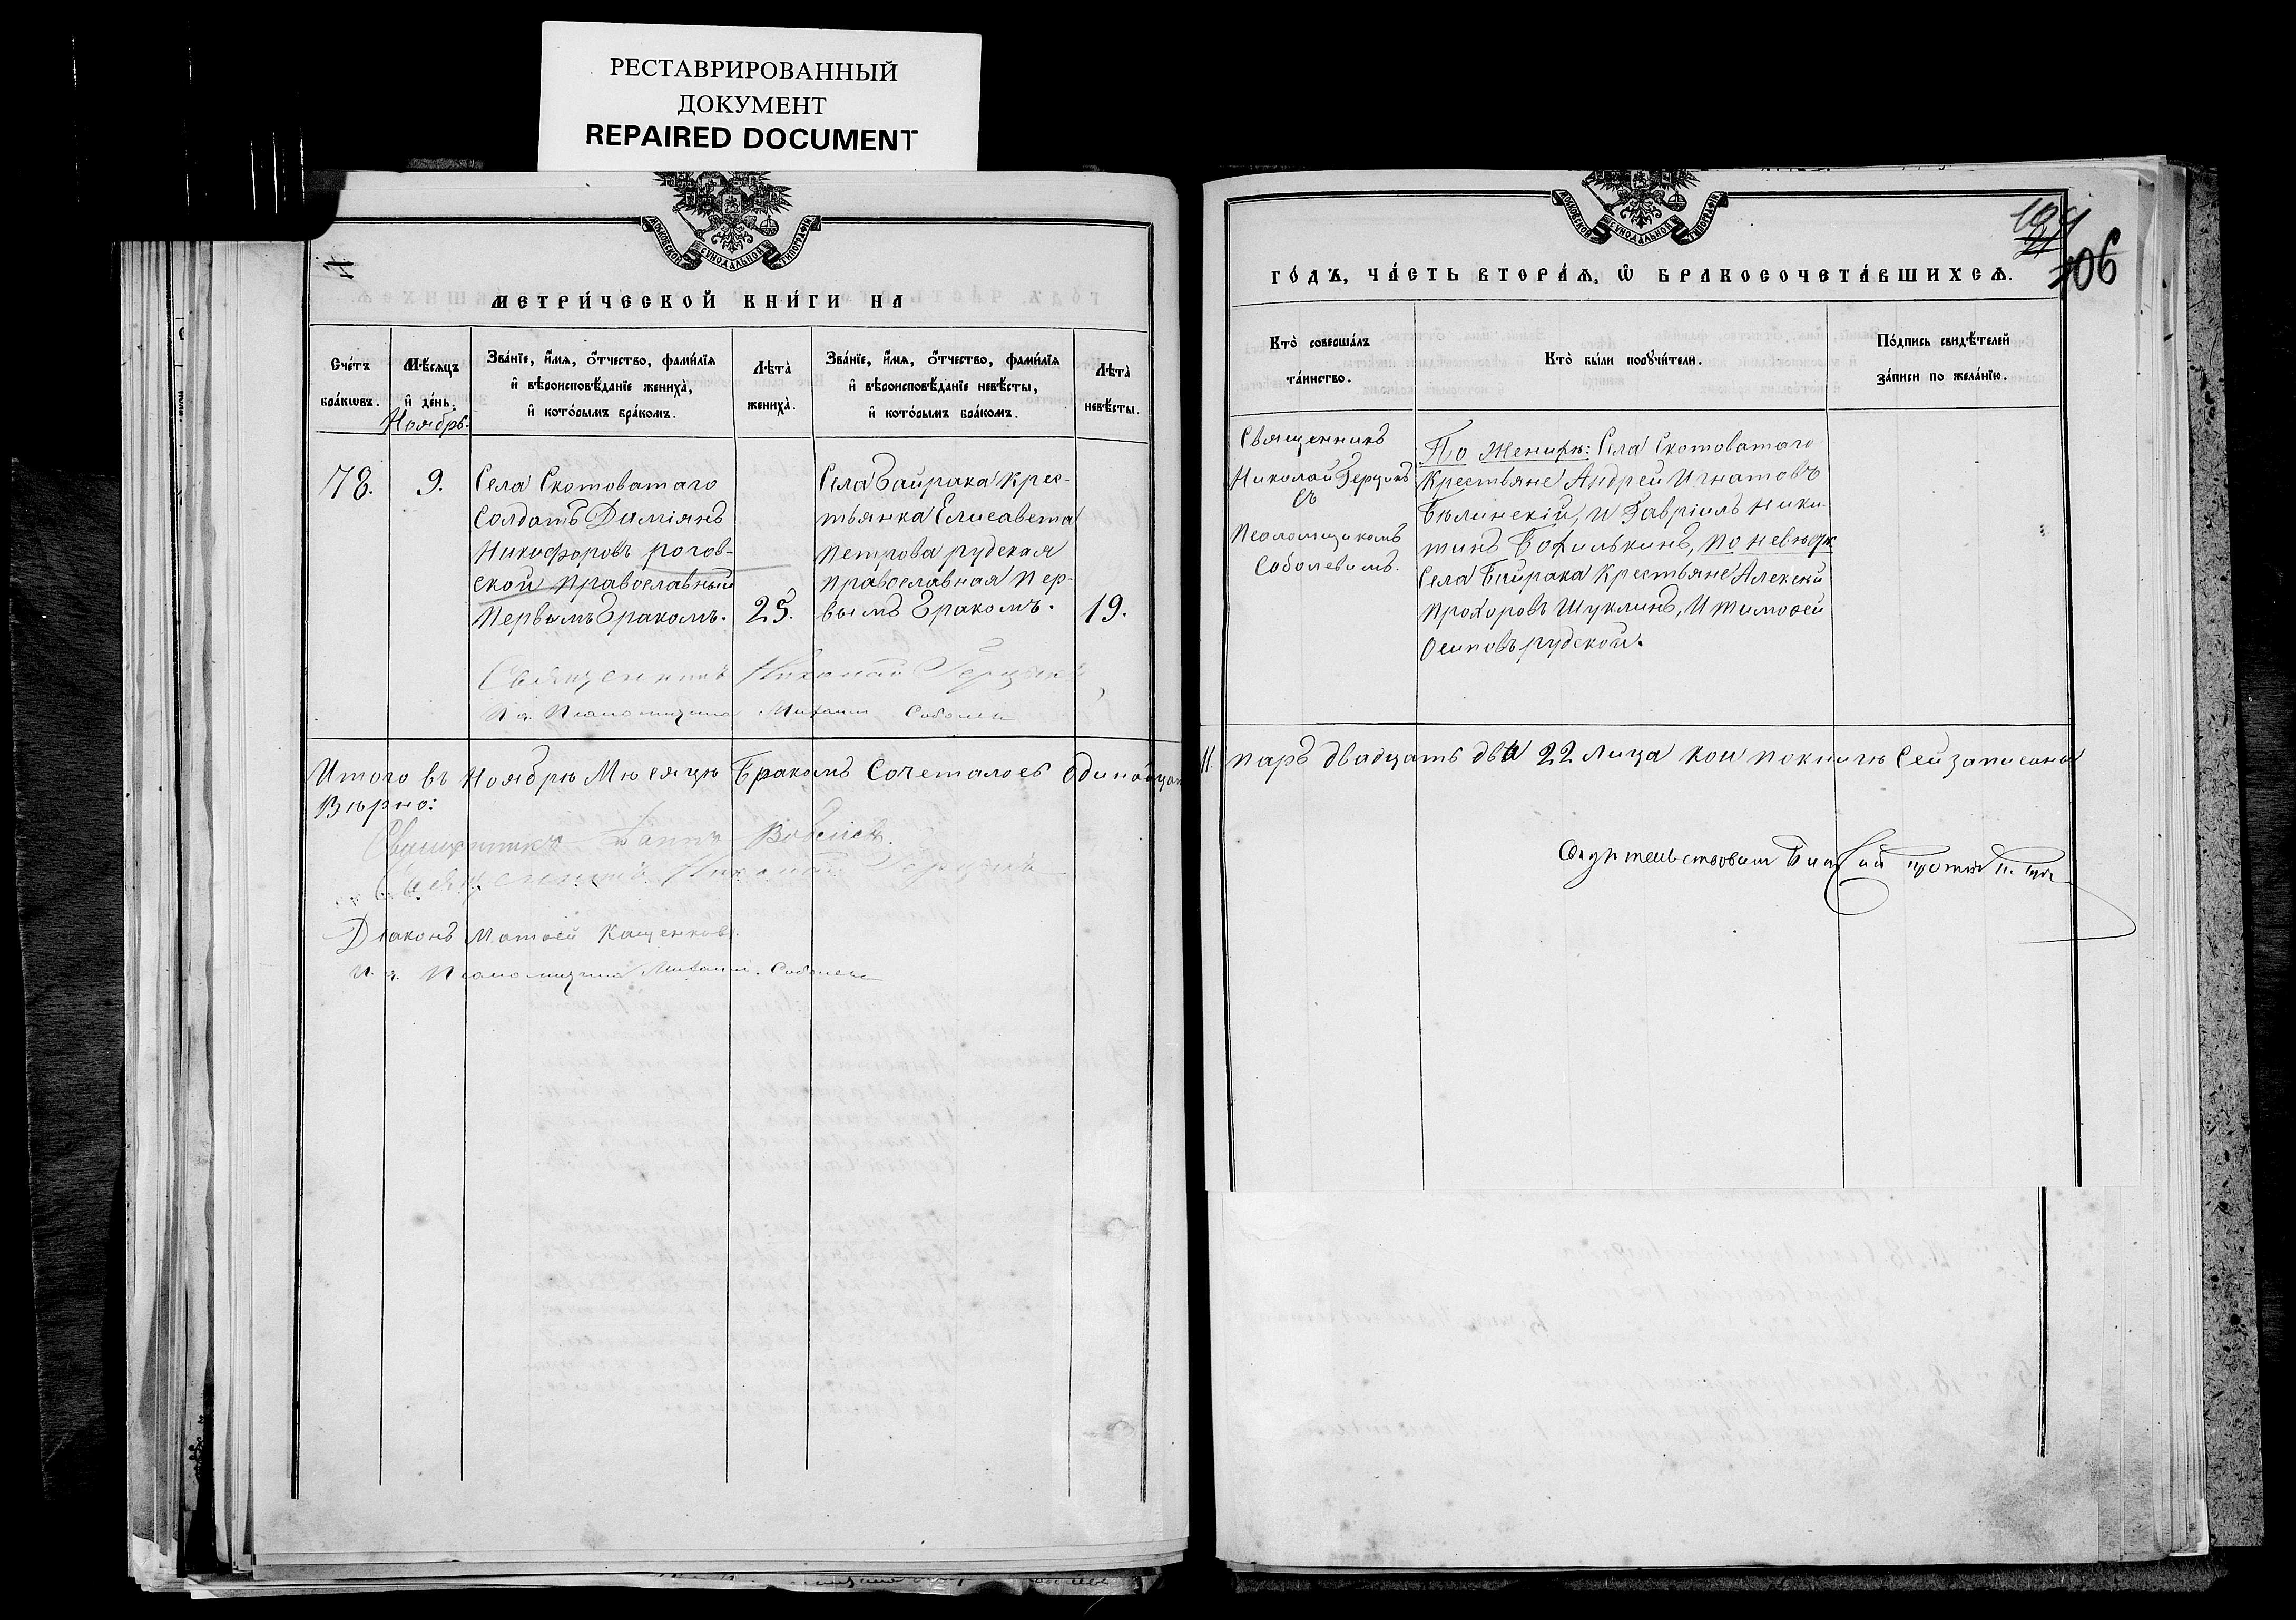 РЕСТАВРИРОВАННЫЙ
ДОКУМЕНТ
REPAIRED DOCUMENT
МОСКОВСКОЙ СѴНОДАЛЬНОЙ ТИПОГРАФІИ
МЕТРИ́ЧЕСКОЙ КНИ́ГИ НА
Сче́тъ бра́кѡвъ.
Мѣ́сяцъ и де́нь.
Ноябрь.
Зва́нїе, и́мя, о́тчество, фами́лїя
и вѣроисповѣ́данїе жениха̀,
и кото́рымъ бра́комъ.
Лѣта̀ жениха̀.
Зва́нїе, и́мя, о́тчество, фами́лїя
и вѣроисповѣ́данїе невѣ́сты,
и кото́рымъ бра́комъ.
Лѣта̀ невѣ́сты.
78.
9.
Села Скотоватаго
Солдатъ Даміянъ
Никифоровъ рогов-
ской православный
Первымъ бракомъ.
25.
Села Байрака Крес-
тьянка Елисавета
Петрова рудская
православная пер-
вымъ бракомъ.
19.
Священникъ Николай Герцыкъ
И. д. Псаломщика Михаилъ Соболев
Итого въ Ноябрѣ Мѣсяцѣ Бракомъ Сочеталось Одинадцать
Вѣрно:
Священникъ
Священникъ Николай Герцыкъ
Діаконъ Матѳей Кащенковъ
И. д. Псаломщика Михаилъ Соболев
МОСКОВСКОЙ СѴНОДАЛЬНОЙ ТИПОГРАФІИ
106
ГО́ДЪ, ЧА́СТЬ ВТОРА́Я, Ѡ БРАКОСОЧЕТА́ВШИХСЯ.
Кто̀ соверша́лъ
та́инство.
Кто̀ бы́ли поручи́тели.
По́дпись свидѣ́телей
за́писи по жела́нїю.
Священникъ
Николай Герцыкъ
съ
Псоломщикомъ
Соболевымъ.
По Женихѣ: Села Скотоватаго
Крестьяне Андрей Игнатовъ
Бѣлинскій, и Гавріилъ Ники-
тинъ по невѣстѣ
Села Байрака Крестьяне Алексѣй
Прохоровъ Шуклинъ, И Тимоѳей
Осиповъ рудской.
11. паръ двадцать два 22 лица кои по книгѣ сей записаны